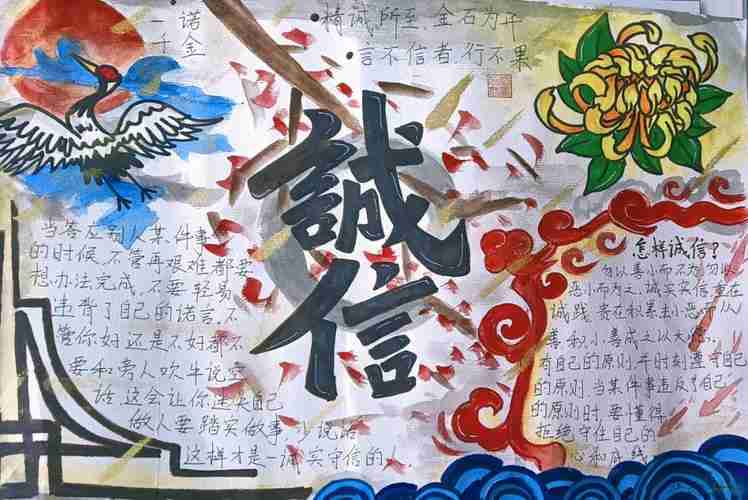 一诺
千金
精诚所至,金石为开
言不信者,行不果
誠
信
当答应别人某件事
的时候,不管再艰难都要
想办法完成,不要轻易
违背了自己的诺言,不
管你好还是不好都不
要和旁人吹牛说空
话 这会让你迷失自己
做人要踏实做事,少说话
这样才是一诚实守信的人.
怎样诚信?
勿以善小而不为勿以
恶小而为之,诚实实信,重在
诚践,贵在积累去小恶而从
善积小善成之以大
有自己的原则,并时刻遵守自己
的原则 当某件事违反了自己
的原则时 要懂得
拒绝守住自己的
心和底线